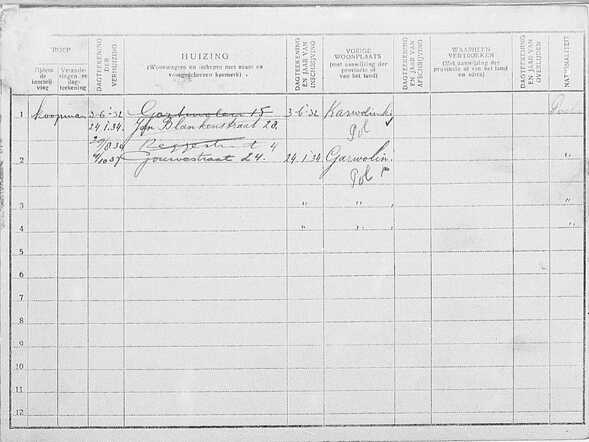 ROEP
Tijdens de inschrijving
Veranderingen en dagteekening
DAGTEEKENING DER VERHUIZING
HUIZING
(Woonwagen en schepen met naam en voorgeschreven kenmerk)
DAGTEEKENING EN JAAR VAN INSCHRIJVING
VORIGE WOONPLAATS
(met aanwijzing der provincie of van het land)
DAGTEEKENING EN JAAR VAN AFSCHRIJVING
WAARHEEN VERTROKKEN
(Met aanwijzing der provincie of van het land en adres)
DAGTEEKENING EN JAAR VAN OVERLIJDEN
NATIONALITEIT
1 Koopman 3-6-32 15 3-6-32
24.1.34. Jan Blankenstraat 28. Pol
4
2 Gouwestraat 24. 24.1.34. Garwolin
Pol
3 " " "
4 " " "
5
6
7
8
9
10
11
12